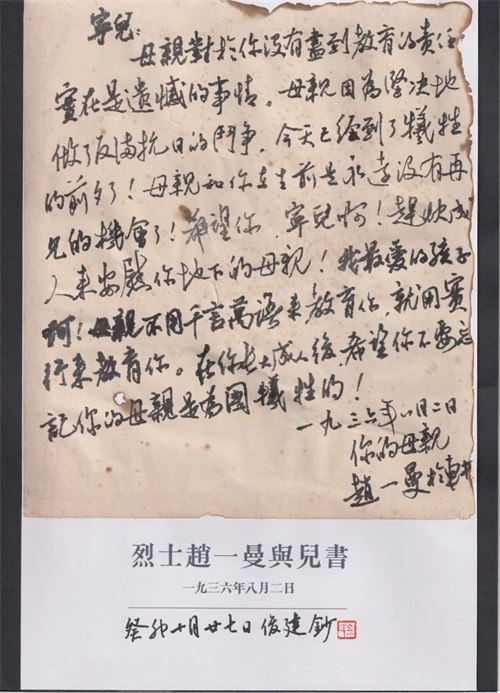 寧兒：
母親對於你没有盡到教育的責任
實在是遺憾的事情。母親因為堅决地
做了反滿抗日的鬥争，今天已經到了犧牲
的前夕了！母親和你在生前是永遠没有再
見的機會了！希望你，寧兒啊！趕快成
人来安慰你地下的母親！我最愛的孩子
啊！母親不用千言萬語来教育你，就用實
行来教育你。在你长大成人後，希望你不要忘
記你的母親是為國犧牲的！
一九三六年八月二日
你的母親
趙一曼於車中
烈士趙一曼與兒書
一九三六年八月二日
癸卯十月廿七日俊建鈔